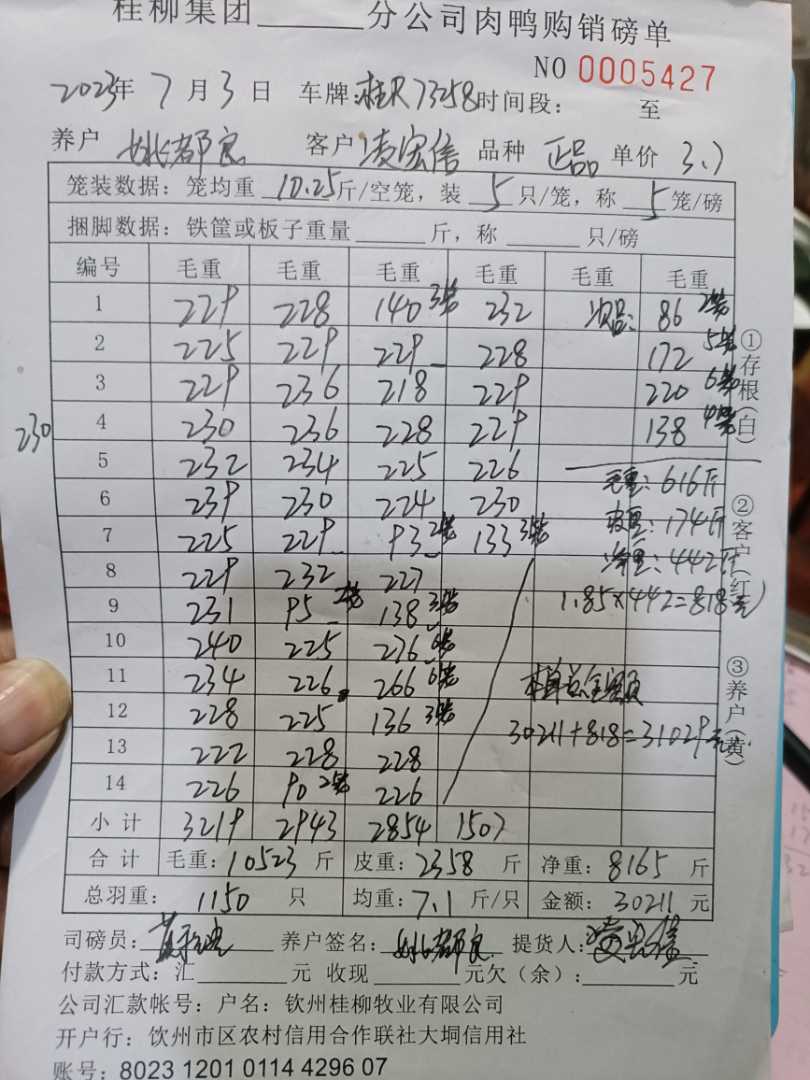 桂柳集团______分公司肉鸭购销磅单
NO 0005427
2023年 7 月 3 日 车牌:桂R73258 时间段: 至
养户 姚都良 客户 凌宏信 品种 正品 单价 3.7
笼装数据: 笼均重 10.25 斤/空笼, 装 5 只/笼, 称 5 笼/磅
捆脚数据: 铁筐或板子重量______斤, 称______只/磅
编号 毛重 毛重 毛重 毛重 毛重 毛重
1 229 228 140 3笼 232 次品: 86 2笼
2 225 229 229 228 172 5笼
3 229 236 218 229 220 6笼
230
4 230 236 228 229 138 4笼
5 232 234 225 226
毛重: 616斤
6 239 230 224 230
皮重: 174斤
7 225 229 93 2笼 133 3笼
净重: 442斤
8 229 232 227
1.85×442=818元
9 231 95 2笼 138 3笼
10 240 225 276 6笼
11 234 226 266 6笼
本单总金额
12 228 225 136 3笼
30211+818=31029元
13 222 228 228
14 226 90 2笼 226
小计 3219 2943 2854 1507
合计 毛重: 10523 斤 皮重: 2358 斤 净重: 8165 斤
总羽重: 1150 只 均重: 7.1 斤/只 金额: 30211 元
司磅员: 养户签名: 姚都良 提货人:
付款方式: 汇______元 收现______元欠(余):______元
公司汇款帐号: 户名: 钦州桂柳牧业有限公司
开户行: 钦州市区农村信用合作联社大垌信用社
账号: 8023 1201 0114 4296 07
①存根(白)
②客户(红)
③养户(黄)